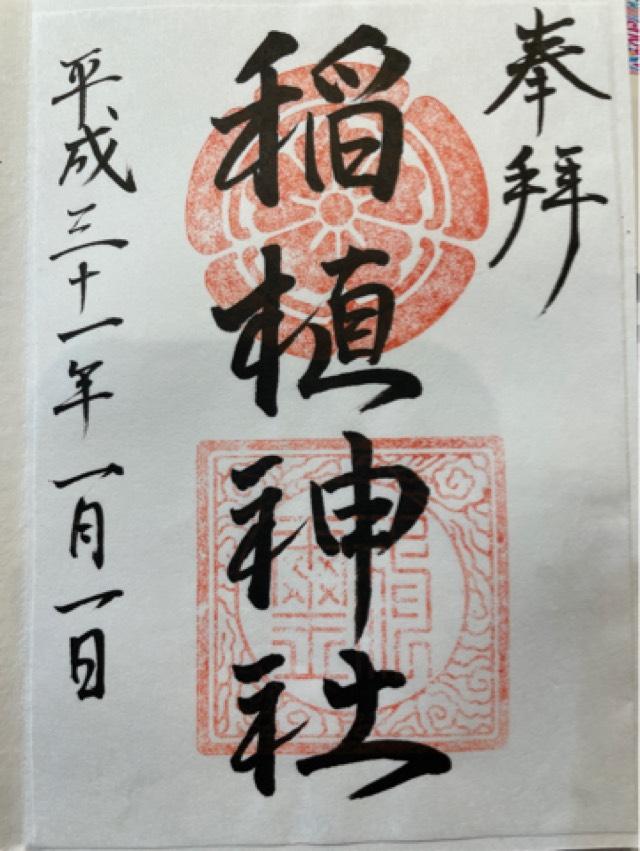 奉拝
稲植神社
平成三十一年一月一日